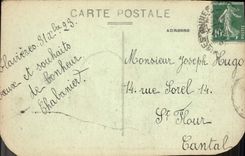 CARTE POSTALE
ADRESSE
31 Xbre 23.
Vœux et souhaits
de bonheur
Chabanier
Monsieur Joseph Hugo
14 rue Sorel 14.
St Flour
Cantal